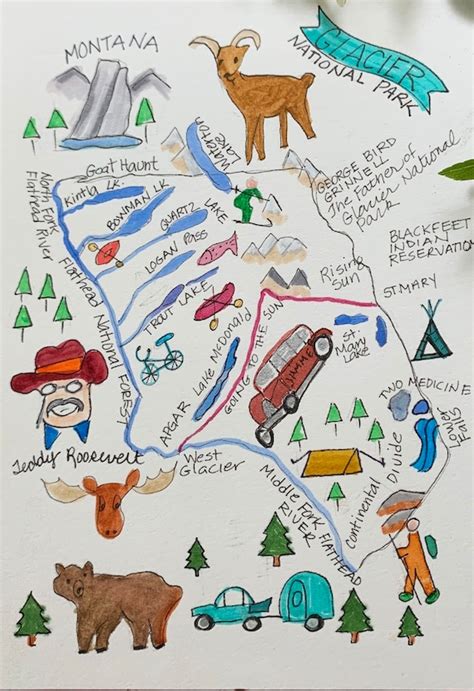 MONTANA
GLACIER
NATIONAL PARK
Waterton
Lake
Goat Haunt
Kintla LK.
BOWMAN LK
QUARTZ LAKE
LOGAN PASS
TROUT LAKE
North Fork
Flathead River
Flathead National FOREST
GEORGE BIRD
GRINNELL
The Father of
Glacier National
Park
BLACKFEET
INDIAN
RESERVATION
Rising
Sun
ST MARY
St.
Mary
Lake
GOING TO THE SUN
Lake McDonald
APGAR
TWO MEDICINE
Lower
Falls
Continental Divide
Teddy Roosevelt
West
Glacier
Middle Fork FLATHEAD
RIVER